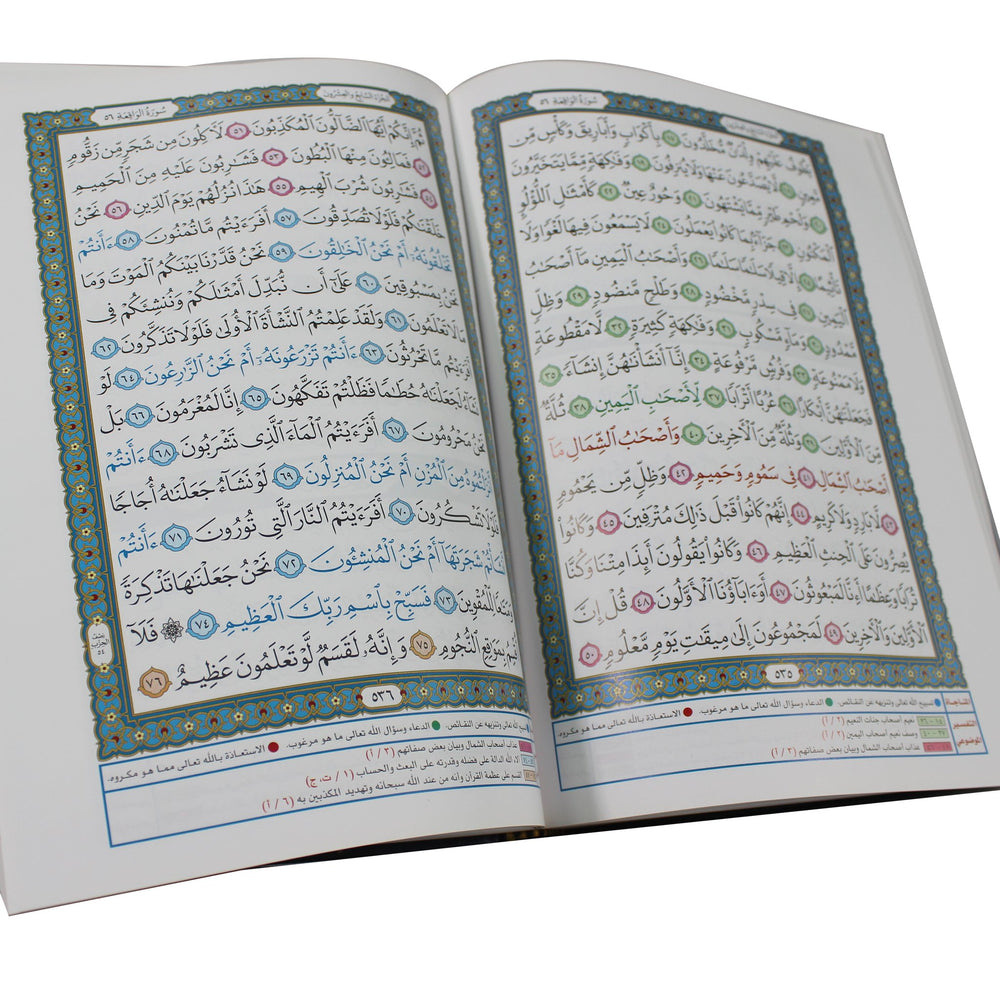 سُورَةُ الوَاقِعَةِ ٥٦
يَطُوفُ عَلَيْهِمْ وِلْدَٰنٌ مُّخَلَّدُونَ ١٧ بِأَكْوَابٍ وَأَبَارِيقَ وَكَأْسٍ مِّن
مَّعِينٍ ١٨ لَّا يُصَدَّعُونَ عَنْهَا وَلَا يُنزِفُونَ ١٩ وَفَٰكِهَةٍ مِّمَّا يَتَخَيَّرُونَ
٢٠ وَلَحْمِ طَيْرٍ مِّمَّا يَشْتَهُونَ ٢١ وَحُورٌ عِينٌ ٢٢ كَأَمْثَٰلِ ٱللُّؤْلُؤِ
ٱلْمَكْنُونِ ٢٣ جَزَآءًۢ بِمَا كَانُوا۟ يَعْمَلُونَ ٢٤ لَا يَسْمَعُونَ فِيهَا لَغْوًا وَلَا
تَأْثِيمًا ٢٥ إِلَّا قِيلًا سَلَٰمًا سَلَٰمًا ٢٦ وَأَصْحَٰبُ ٱلْيَمِينِ مَآ أَصْحَٰبُ
ٱلْيَمِينِ ٢٧ فِى سِدْرٍ مَّخْضُودٍ ٢٨ وَطَلْحٍ مَّنضُودٍ ٢٩ وَظِلٍّ
مَّمْدُودٍ ٣٠ وَمَآءٍ مَّسْكُوبٍ ٣١ وَفَٰكِهَةٍ كَثِيرَةٍ ٣٢ لَّا مَقْطُوعَةٍ
وَلَا مَمْنُوعَةٍ ٣٣ وَفُرُشٍ مَّرْفُوعَةٍ ٣٤ إِنَّآ أَنشَأْنَٰهُنَّ إِنشَآءً ٣٥
فَجَعَلْنَٰهُنَّ أَبْكَارًا ٣٦ عُرُبًا أَتْرَابًا ٣٧ لِّأَصْحَٰبِ ٱلْيَمِينِ ٣٨ ثُلَّةٌ
مِّنَ ٱلْأَوَّلِينَ ٣٩ وَثُلَّةٌ مِّنَ ٱلْءَاخِرِينَ ٤٠ وَأَصْحَٰبُ ٱلشِّمَالِ مَآ
أَصْحَٰبُ ٱلشِّمَالِ ٤١ فِى سَمُومٍ وَحَمِيمٍ ٤٢ وَظِلٍّ مِّن يَحْمُومٍ
٤٣ لَّا بَارِدٍ وَلَا كَرِيمٍ ٤٤ إِنَّهُمْ كَانُوا۟ قَبْلَ ذَٰلِكَ مُتْرَفِينَ ٤٥ وَكَانُوا۟
يُصِرُّونَ عَلَى ٱلْحِنثِ ٱلْعَظِيمِ ٤٦ وَكَانُوا۟ يَقُولُونَ أَئِذَا مِتْنَا وَكُنَّا
تُرَابًا وَعِظَٰمًا أَءِنَّا لَمَبْعُوثُونَ ٤٧ أَوَءَابَآؤُنَا ٱلْأَوَّلُونَ ٤٨ قُلْ إِنَّ
ٱلْأَوَّلِينَ وَٱلْءَاخِرِينَ ٤٩ لَمَجْمُوعُونَ إِلَىٰ مِيقَٰتِ يَوْمٍ مَّعْلُومٍ ٥٠
٥٣٥
المناجاة تسبيح الله تعالى وتنزيهه عن النقائص. الدعاء وسؤال الله تعالى ما هو مرغوب. الاستعاذة بالله تعالى مما هو مكروه.
التفسير الموضوعي
نعيم أصحاب جنات النعيم (٢ / أ)
٢٧ - ٤٠ وصف نعيم أصحاب اليمين (٢ / أ)
عذاب أصحاب الشمال وبيان بعض صفاتهم (٣ / أ)
الجُزءُ السَّابِعُ وَالعِشْرُونَ
سُورَةُ الوَاقِعَةِ ٥٦
ثُمَّ إِنَّكُمْ أَيُّهَا ٱلضَّآلُّونَ ٱلْمُكَذِّبُونَ ٥١ لَءَاكِلُونَ مِن شَجَرٍ مِّن زَقُّومٍ
٥٢ فَمَالِـُٔونَ مِنْهَا ٱلْبُطُونَ ٥٣ فَشَٰرِبُونَ عَلَيْهِ مِنَ ٱلْحَمِيمِ
٥٤ فَشَٰرِبُونَ شُرْبَ ٱلْهِيمِ ٥٥ هَٰذَا نُزُلُهُمْ يَوْمَ ٱلدِّينِ ٥٦ نَحْنُ
خَلَقْنَٰكُمْ فَلَوْلَا تُصَدِّقُونَ ٥٧ أَفَرَءَيْتُم مَّا تُمْنُونَ ٥٨ ءَأَنتُمْ
تَخْلُقُونَهُۥٓ أَمْ نَحْنُ ٱلْخَٰلِقُونَ ٥٩ نَحْنُ قَدَّرْنَا بَيْنَكُمُ ٱلْمَوْتَ وَمَا
نَحْنُ بِمَسْبُوقِينَ ٦٠ عَلَىٰٓ أَن نُّبَدِّلَ أَمْثَٰلَكُمْ وَنُنشِئَكُمْ فِى
مَا لَا تَعْلَمُونَ ٦١ وَلَقَدْ عَلِمْتُمُ ٱلنَّشْأَةَ ٱلْأُولَىٰ فَلَوْلَا تَذَكَّرُونَ ٦٢
أَفَرَءَيْتُم مَّا تَحْرُثُونَ ٦٣ ءَأَنتُمْ تَزْرَعُونَهُۥٓ أَمْ نَحْنُ ٱلزَّٰرِعُونَ ٦٤ لَوْ
نَشَآءُ لَجَعَلْنَٰهُ حُطَٰمًا فَظَلْتُمْ تَفَكَّهُونَ ٦٥ إِنَّا لَمُغْرَمُونَ ٦٦ بَلْ
نَحْنُ مَحْرُومُونَ ٦٧ أَفَرَءَيْتُمُ ٱلْمَآءَ ٱلَّذِى تَشْرَبُونَ ٦٨ ءَأَنتُمْ
أَنزَلْتُمُوهُ مِنَ ٱلْمُزْنِ أَمْ نَحْنُ ٱلْمُنزِلُونَ ٦٩ لَوْ نَشَآءُ جَعَلْنَٰهُ أُجَاجًا
فَلَوْلَا تَشْكُرُونَ ٧٠ أَفَرَءَيْتُمُ ٱلنَّارَ ٱلَّتِى تُورُونَ ٧١ ءَأَنتُمْ
أَنشَأْتُمْ شَجَرَتَهَآ أَمْ نَحْنُ ٱلْمُنشِـُٔونَ ٧٢ نَحْنُ جَعَلْنَٰهَا تَذْكِرَةً
وَمَتَٰعًا لِّلْمُقْوِينَ ٧٣ فَسَبِّحْ بِٱسْمِ رَبِّكَ ٱلْعَظِيمِ ٧٤ فَلَآ
أُقْسِمُ بِمَوَٰقِعِ ٱلنُّجُومِ ٧٥ وَإِنَّهُۥ لَقَسَمٌ لَّوْ تَعْلَمُونَ عَظِيمٌ ٧٦
نِصْفُ الحِزْبِ ٥٤
٥٣٦
الله تعالى وتنزيهه عن النقائص. الدعاء وسؤال الله تعالى ما هو مرغوب. الاستعاذة بالله تعالى مما هو مكروه.
عذاب أصحاب الشمال وبيان بعض صفاتهم (٣ / أ)
الله الدالة على فضله وقدرته على البعث والحساب (١ / ت، ج)
القسم على عظمة القرآن وأنه من عند الله سبحانه وتهديد المكذبين به (٦ / أ)